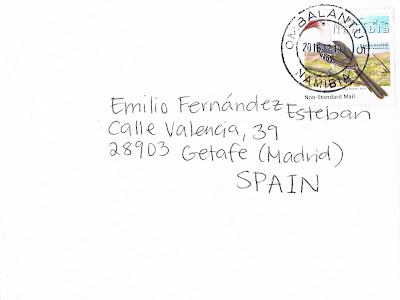 OMBALANTU
2016 -12- 1
NAMIBIA
Namibia
Non-Standard Mail
Emilio Fernández Esteban
Calle Valencia, 39
28903 Getafe (Madrid)
SPAIN